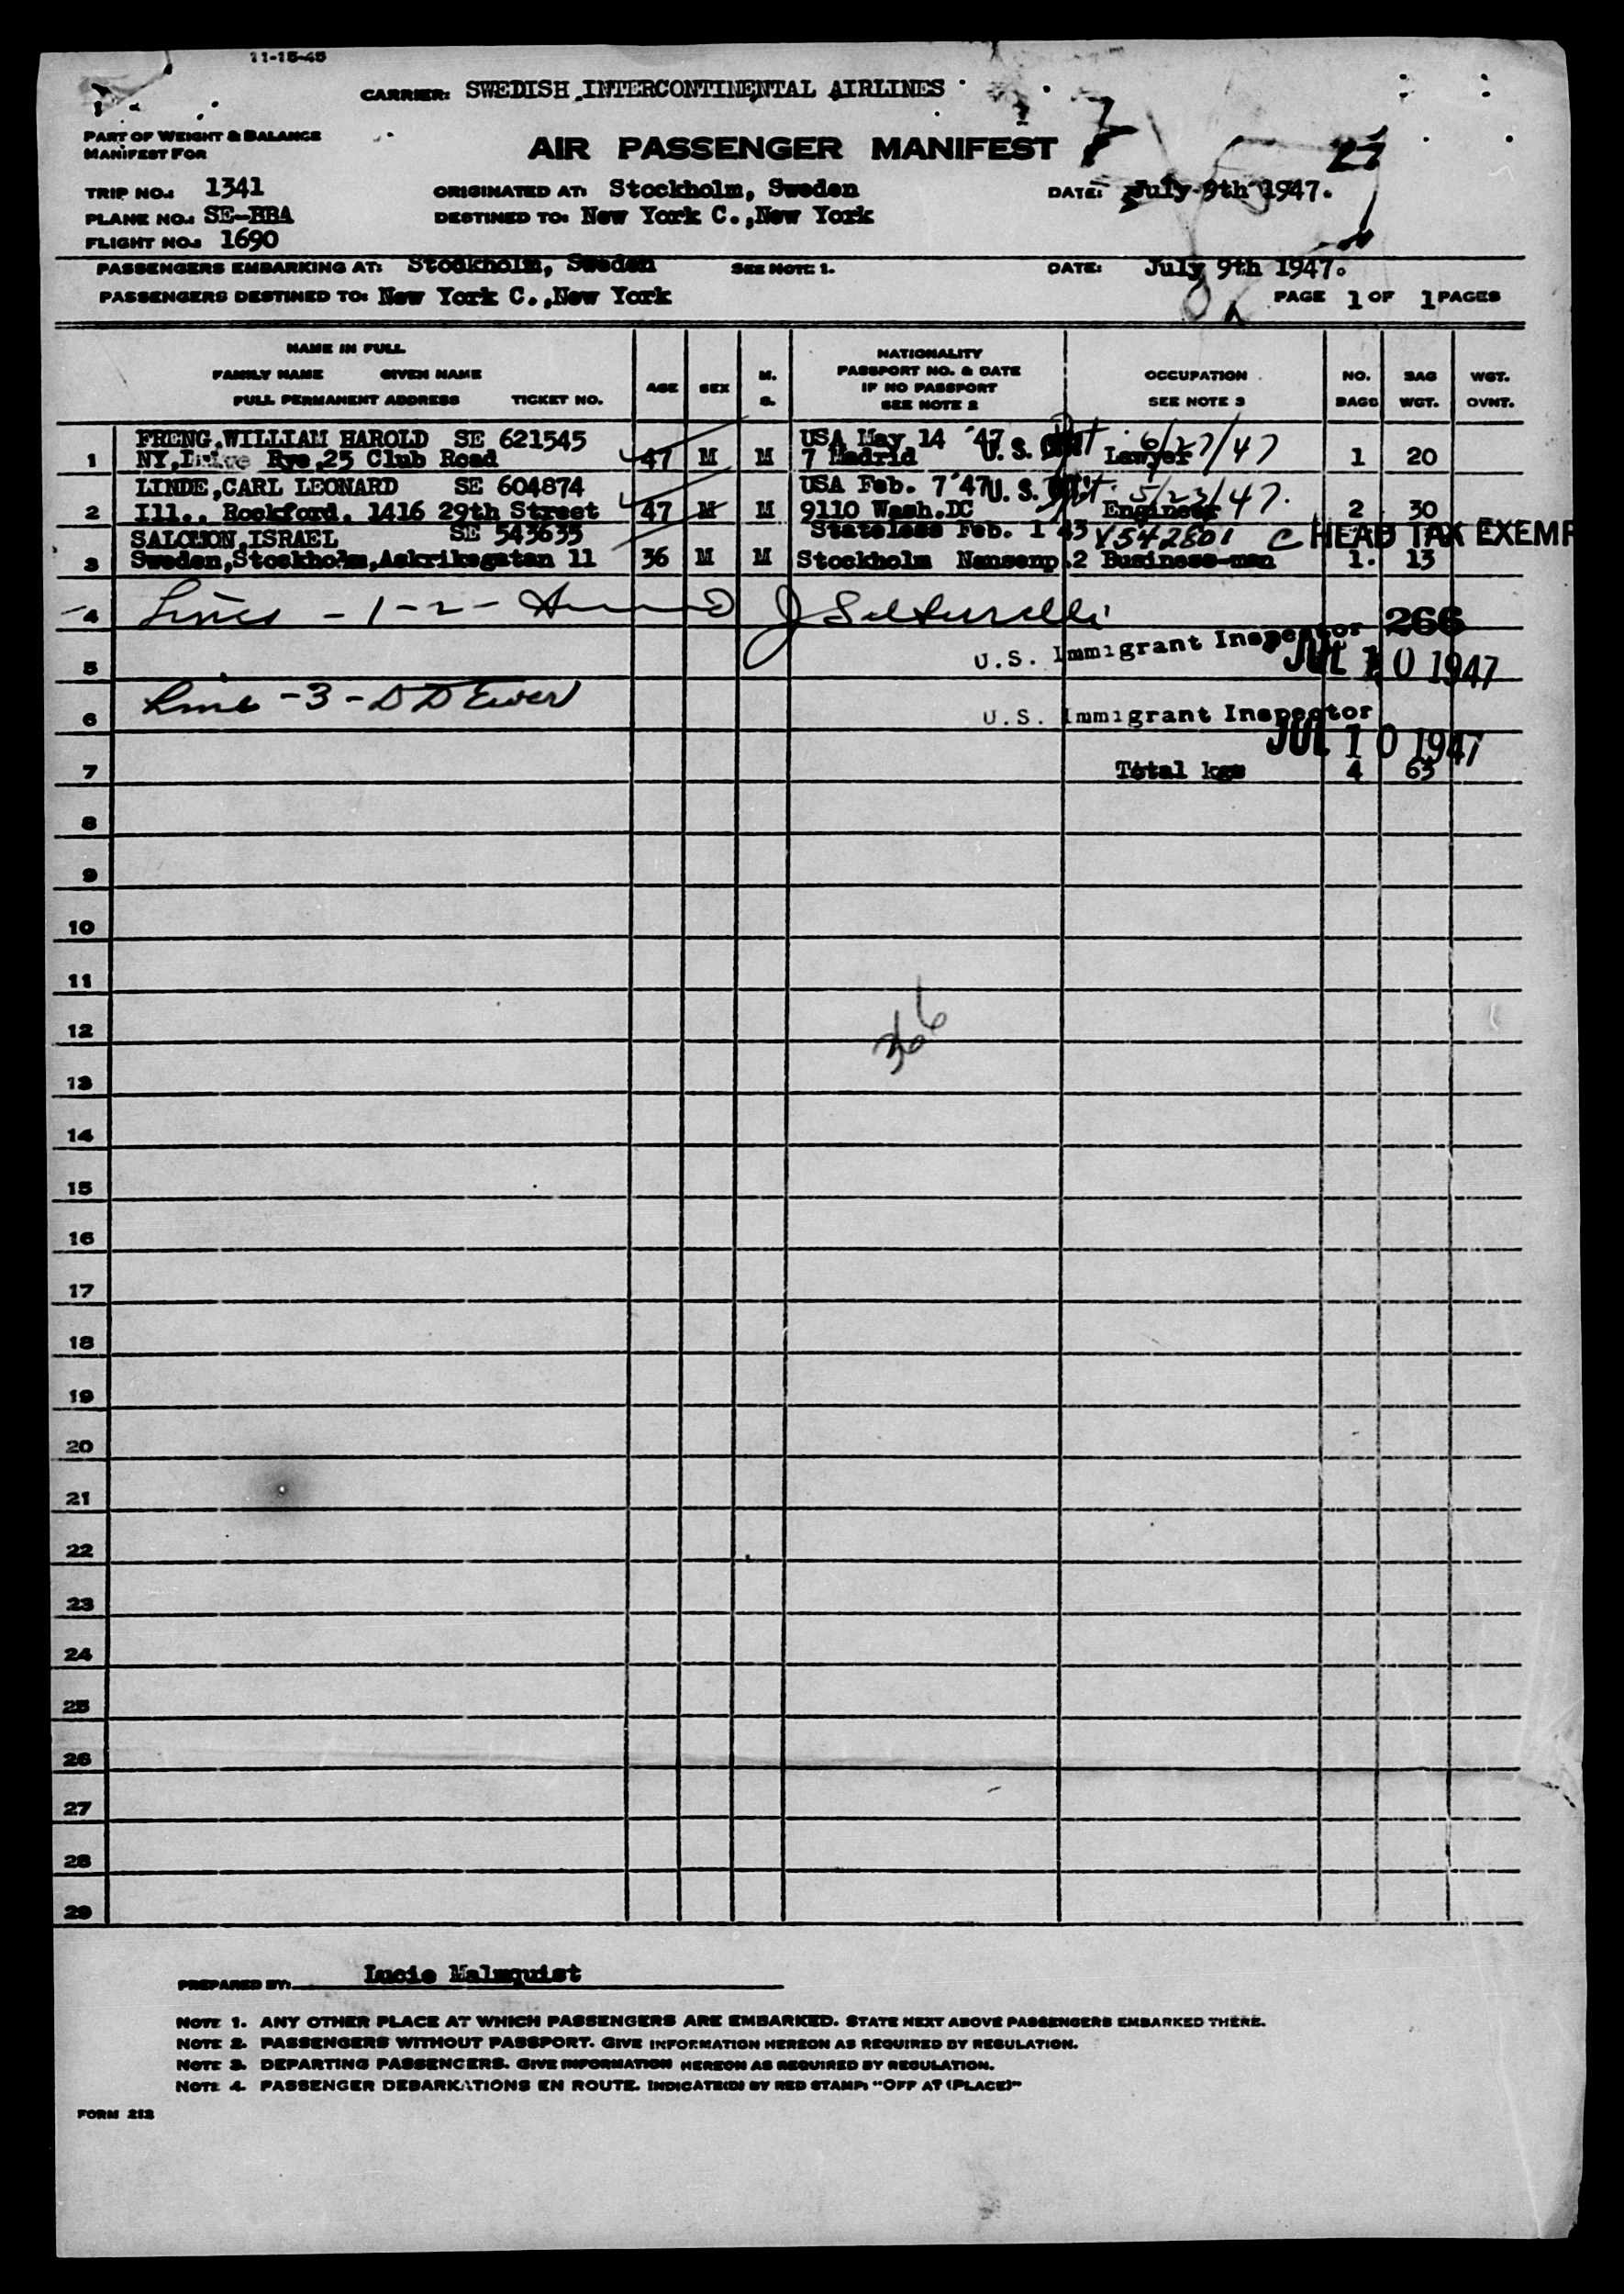 11-15-45
CARRIER: SWEDISH INTERCONTINENTAL AIRLINES
PART OF WEIGHT & BALANCE
MANIFEST FOR
AIR PASSENGER MANIFEST
27
TRIP NO.: 1341 ORIGINATED AT: Stockholm, Sweden DATE: July 9th 1947.
PLANE NO.: SE-BBA DESTINED TO: New York C.,New York
FLIGHT NO.: 1690
PASSENGERS EMBARKING AT: Stockholm, Sweden SEE NOTE 1. DATE: July 9th 1947.
PASSENGERS DESTINED TO: New York C.,New York PAGE 1 OF 1 PAGES
NAME IN FULL
FAMILY NAME GIVEN NAME
FULL PERMANENT ADDRESS TICKET NO.
AGE
SEX
M.
S.
NATIONALITY
PASSPORT NO. & DATE
IF NO PASSPORT
SEE NOTE 2
OCCUPATION
SEE NOTE 3
NO.
BAGS
BAG
WGT.
WGT.
OVNT.
FRENG,WILLIAM HAROLD SE 621545 USA May 14 '47 U. S. 6/27/47
1 NY, Rye,25 Club Road 47 M M 7 Madrid Lawyer 1 20
LINDE,CARL LEONARD SE 604874 USA Feb. 7'47 U. S. 5/23/47.
2 Ill., Rockford, 1416 29th Street 47 M M 9110 Wash.DC Engineer 2 30
SALOMON,ISRAEL SE 543635 Stateless Feb. 1 43 V542801 C HEAD TAX EXEMP
3 Sweden,Stockholm,Askriksgatan 11 36 M M Stockholm Nansenp.2 Business-man 1. 13
4 Lines - 1 - 2 - 266
U.S. Immigrant Inspector
5 JUL 10 1947
6 Line - 3 - D D Ewer
U.S. Immigrant Inspector
JUL 10 1947
7 Total kgs 4 63
8
9
10
11
12
13
14
15
16
17
18
19
20
21
22
23
24
25
26
27
28
29
PREPARED BY: Lucie Malmquist
NOTE 1. ANY OTHER PLACE AT WHICH PASSENGERS ARE EMBARKED. STATE NEXT ABOVE PASSENGERS EMBARKED THERE.
NOTE 2. PASSENGERS WITHOUT PASSPORT. GIVE INFORMATION HEREON AS REQUIRED BY REGULATION.
NOTE 3. DEPARTING PASSENGERS. GIVE INFORMATION HEREON AS REQUIRED BY REGULATION.
NOTE 4. PASSENGER DEBARKATIONS EN ROUTE. INDICATE(D) BY RED STAMP: "OFF AT (PLACE)"
FORM 212